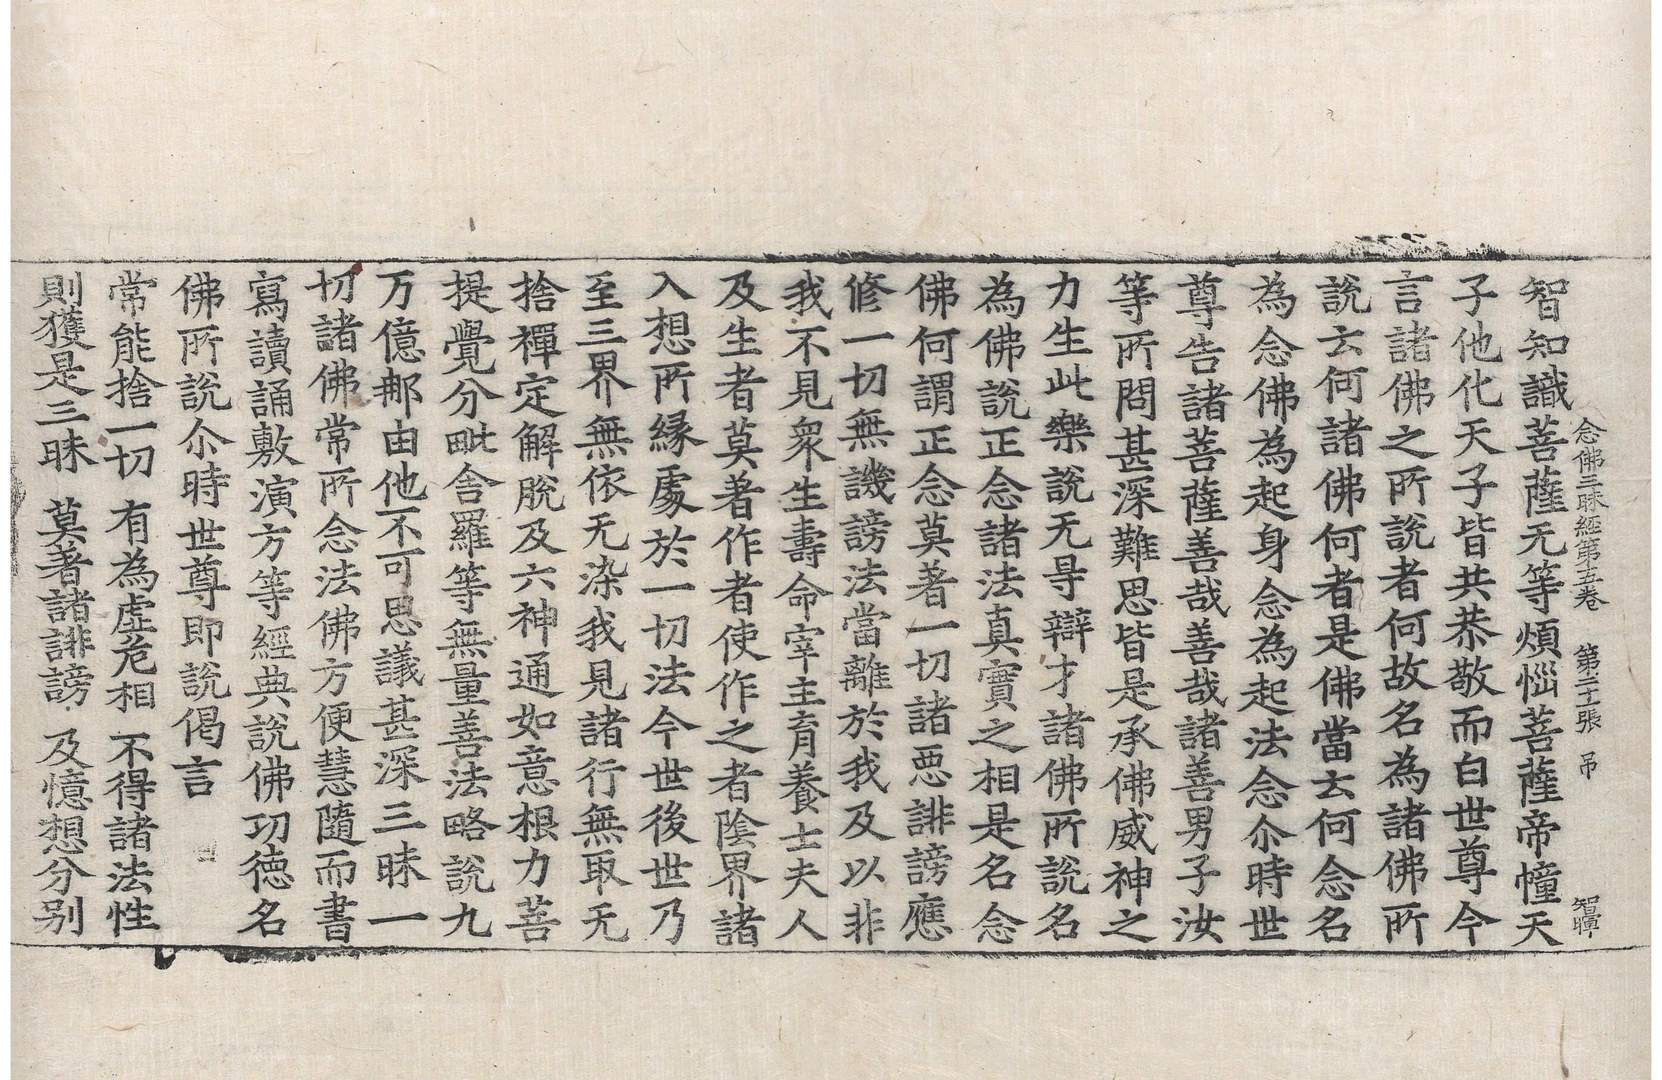 念佛三昧經第五卷 第二十張 吊 智暉
智知識菩薩无等煩惱菩薩帝幢天
子他化天子皆共恭敬而白世尊今
言諸佛之所說者何故名為諸佛所
說云何諸佛何者是佛當云何念名
為念佛為起身念為起法念尒時世
尊告諸菩薩善哉善哉諸善男子汝
等所問甚深難思皆是承佛威神之
力生此樂說无㝵辯才諸佛所說名
為佛說正念諸法真實之相是名念
佛何謂正念莫著一切諸惡誹謗應
修一切無譏謗法當離於我及以非
我不見衆生壽命宰主育養士夫人
及生者莫著作者使作之者陰界諸
入想所緣處於一切法今世後世乃
至三界無依无染我見諸行無取无
捨禪定解脫及六神通如意根力菩
提覺分毗舍羅等無量善法略說九
万億那由他不可思議甚深三昧一
切諸佛常所念法佛方便慧隨而書
寫讀誦敷演方等經典說佛功德名
佛所說尒時世尊即說偈言
常能捨一切 有為虛危相 不得諸法性
則獲是三昧 莫著諸誹謗 及憶想分別